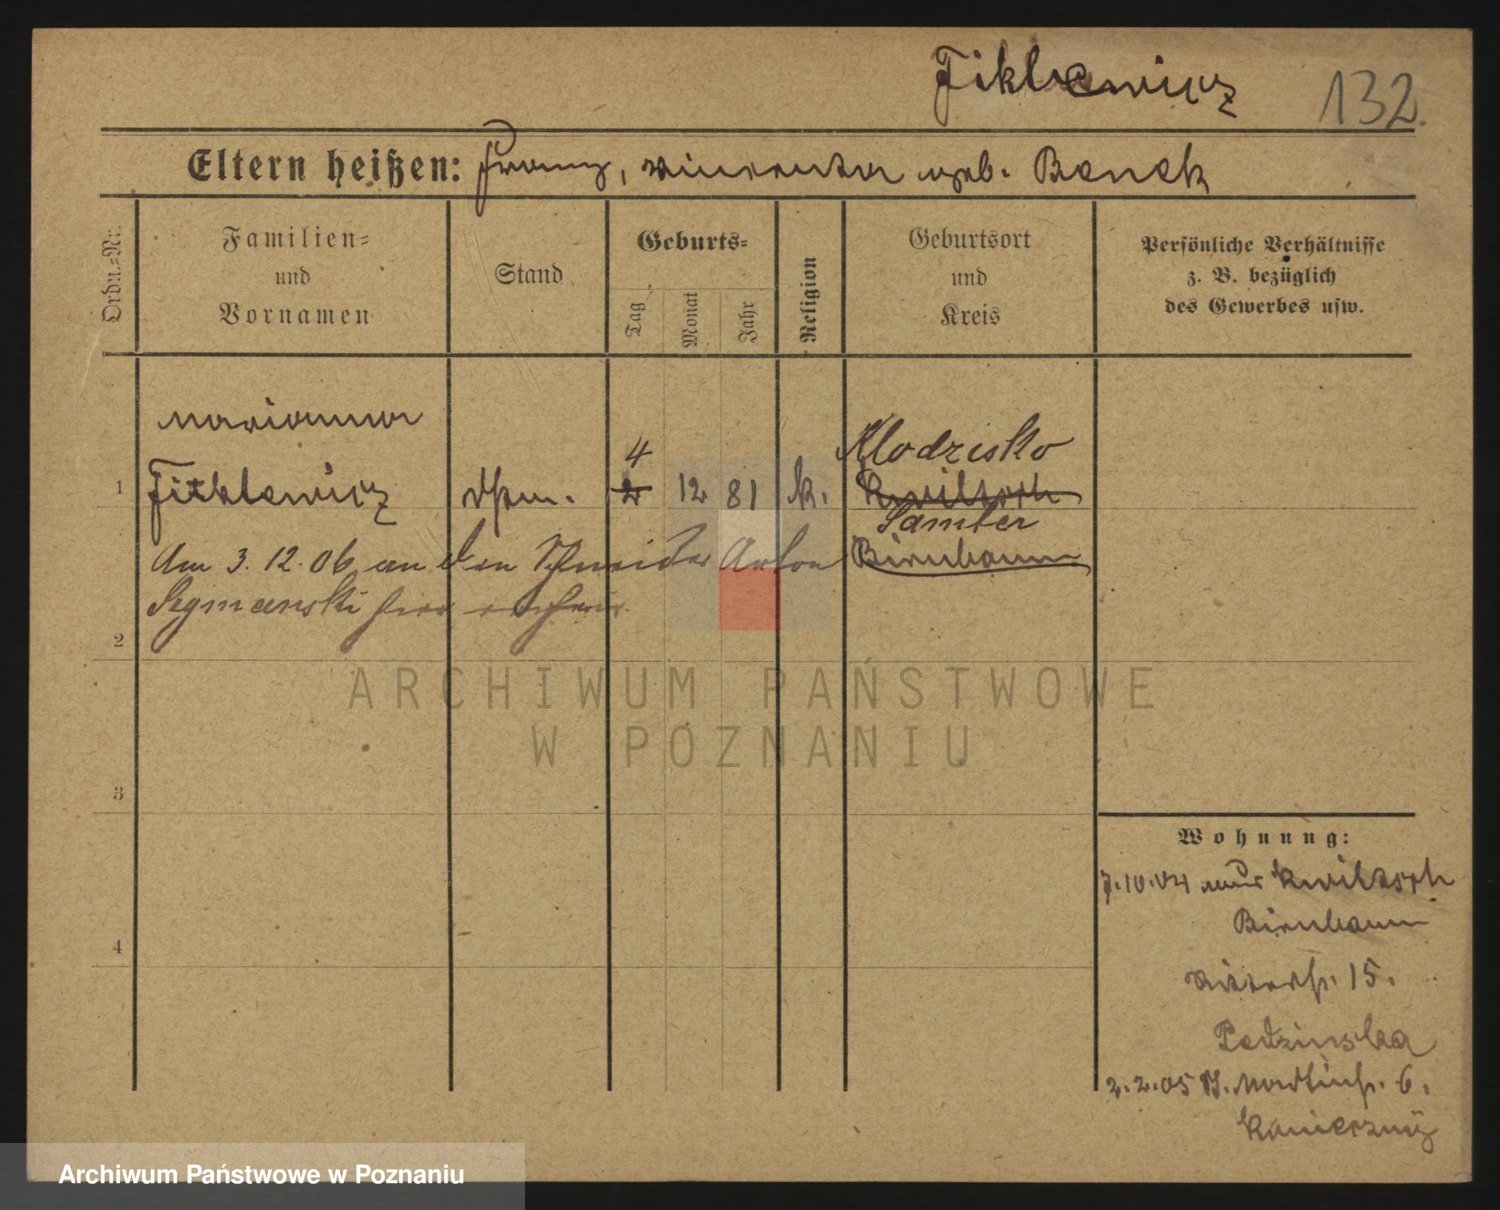 Fiklewicz 132.
Eltern heißen: Franz, Vincenta geb. Benek
Ordn.-Nr.
Familien-
und
Vornamen
Stand
Geburts-
Tag
Monat
Jahr
Religion
Geburtsort
und
Kreis
Persönliche Verhältnisse
z. B. bezüglich
des Gewerbes usw.
Marianna
4
Klodzisko
1 Fiklewicz 2 12 81 k. Kwiltsch
Samter
Am 3.12.06 an den Schneider Anton Birnbaum
Szymanski hier
2
ARCHIWUM PAŃSTWOWE
W POZNANIU
3
Wohnung:
7.10.04 aus Kwiltsch
4 Birnbaum
Ritterstr. 15.
2.2.05 St. Martinstr. 6.
Archiwum Państwowe w Poznaniu